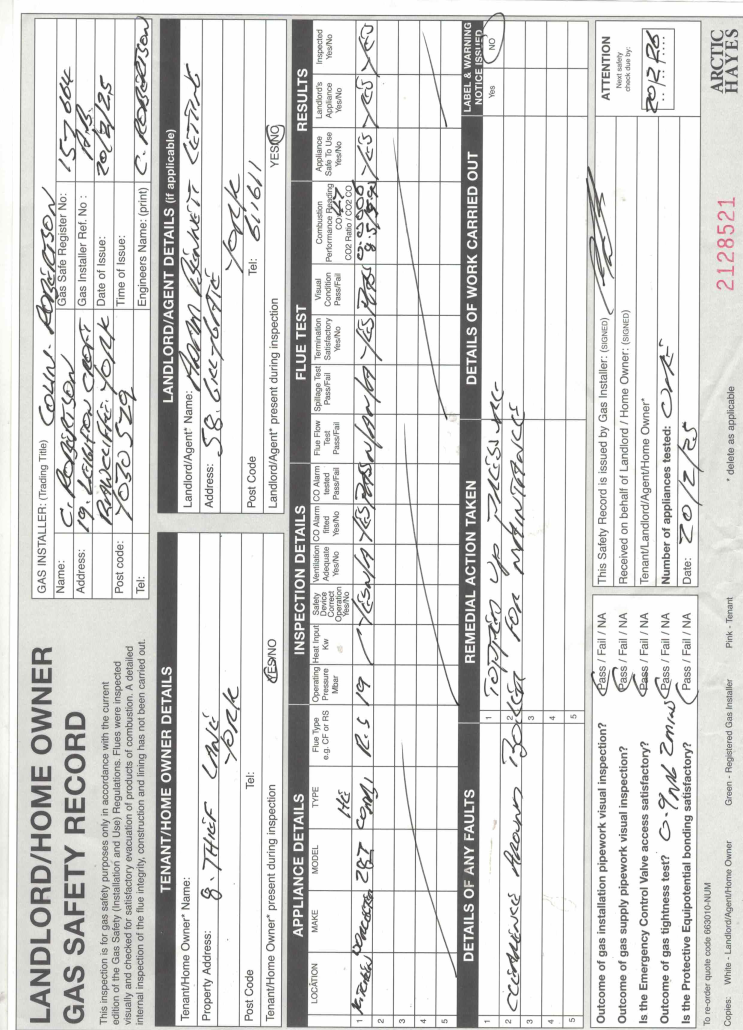 LANDLORD/HOME OWNER
GAS SAFETY RECORD
This inspection is for gas safety purposes only in accordance with the current
edition of the Gas Safety (Installation and Use) Regulations. Flues were inspected
visually and checked for satisfactory evacuation of products of combustion. A detailed
internal inspection of the flue integrity, construction and lining has not been carried out.
GAS INSTALLER: (Trading Title) COLIN. ROBERTSON
Name: C. ROBERTSON
Gas Safe Register No: 157664
Address: 19. LEIGHTON CROFT
Gas Installer Ref. No :
RAWCLIFFE. YORK
Date of Issue: 20/2/25
Post code: YO30 5
Time of Issue:
Tel:
Engineers Name: (print) C. ROBERTSON
TENANT/HOME OWNER DETAILS
Tenant/Home Owner* Name:
Property Address: 8. THIEF LANE
YORK
Post Code
Tel:
Tenant/Home Owner* present during inspection YES/NO
LANDLORD/AGENT DETAILS (if applicable)
Landlord/Agent* Name: ADAM BENNETT LETTING
Address: 58. GILLYGATE
YORK
Post Code
Tel: 611611
Landlord/Agent* present during inspection YES/NO
APPLIANCE DETAILS
INSPECTION DETAILS
FLUE TEST
RESULTS
LOCATION
MAKE
MODEL
TYPE
Flue Type e.g. CF or RS
Operating Pressure Mbar
Heat Input Kw
Safety Device Correct Operation Yes/No
Ventilation Adequate Yes/No
CO Alarm fitted Yes/No
CO Alarm tested Pass/Fail
Flue Flow Test Pass/Fail
Spillage Test Pass/Fail
Termination Satisfactory Yes/No
Visual Condition Pass/Fail
Combustion Performance Reading CO CO2 Ratio / CO2 CO
Appliance Safe To Use Yes/No
Landlord's Appliance Yes/No
Inspected Yes/No
1 KITCHEN 28T COMBI HE R.S 19 YES N/A YES PASS N/A N/A YES PASS YES YES YES
2
3
4
5
DETAILS OF ANY FAULTS
REMEDIAL ACTION TAKEN
DETAILS OF WORK CARRIED OUT
LABEL & WARNING NOTICE ISSUED
1
1 TOPPED UP PRESSURE
Yes NO
2 CLEARENCE AROUND BOILER
2 FOR MAINTENANCE
3 3
4 4
5 5
Outcome of gas installation pipework visual inspection? Pass / Fail / NA
Outcome of gas supply pipework visual inspection? Pass / Fail / NA
Is the Emergency Control Valve access satisfactory? Pass / Fail / NA
Outcome of gas tightness test? 2mins Pass / Fail / NA
Is the Protective Equipotential bonding satisfactory? Pass / Fail / NA
This Safety Record is issued by Gas Installer: (SIGNED)
Received on behalf of Landlord / Home Owner: (SIGNED)
Tenant/Landlord/Agent/Home Owner*
Number of appliances tested: ONE
Date: 20/2/25
ATTENTION
Next safety
check due by:
To re-order quote code 663010-NUM
Copies: White - Landlord/Agent/Home Owner Green - Registered Gas Installer Pink - Tenant
* delete as applicable
2128521
ARCTIC
HAYES